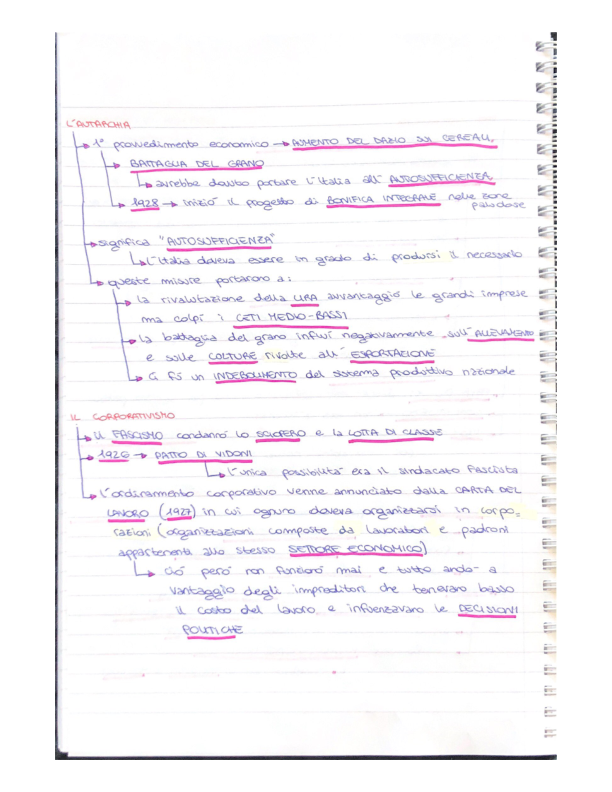 L'AUTARCHIA
1° provvedimento economico → AUMENTO DEL DAZIO SUI CEREALI,
BATTAGLIA DEL GRANO
avrebbe dovuto portare l'Italia all'AUTOSUFFICIENZA
1928 → iniziò il progetto di BONIFICA INTEGRALE nelle zone
paludose
significa "AUTOSUFFICIENZA"
L'Italia doveva essere in grado di produrssi il necessario
queste misure portarono a:
la rivalutazione della LIRA avvantaggiò le grandi imprese
ma colpì i CETI MEDIO-BASSI
la battaglia del grano influì negativamente sull'ALLEVAMENTO
e sulle COLTURE rivolte all'ESPORTAZIONE
ci fu un INDEBOLIMENTO del sistema produttivo nazionale
IL CORPORATIVISMO
il FASCISMO condannò lo SCIOPERO e la LOTTA DI CLASSE
1926 → PATTO DI VIDONI
l'unica possibilità era il sindacato Fascista
l'ordinamento corporativo venne annunciato dalla CARTA DEL
LAVORO (1927) in cui ognuno doveva organizzarsi in corpo=
razioni (organizzazioni composte da lavoratori e padroni
appartenenti allo stesso SETTORE ECONOMICO)
ciò però non funzionò mai e tutto andò a
vantaggio degli imprenditori che tenevano basso
il costo del lavoro e influenzavano le DECISIONI
POLITICHE